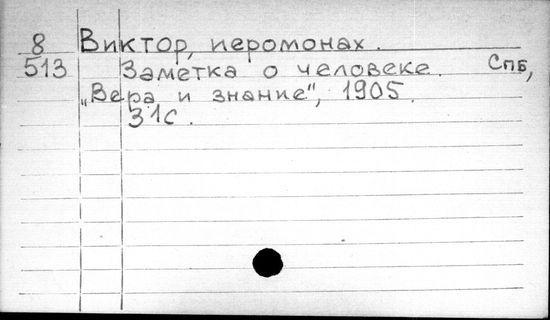 8 Виктор, иеромонах.
513 Заметка о человеке. Спб,
„Вера и знание", 1905.
31с.